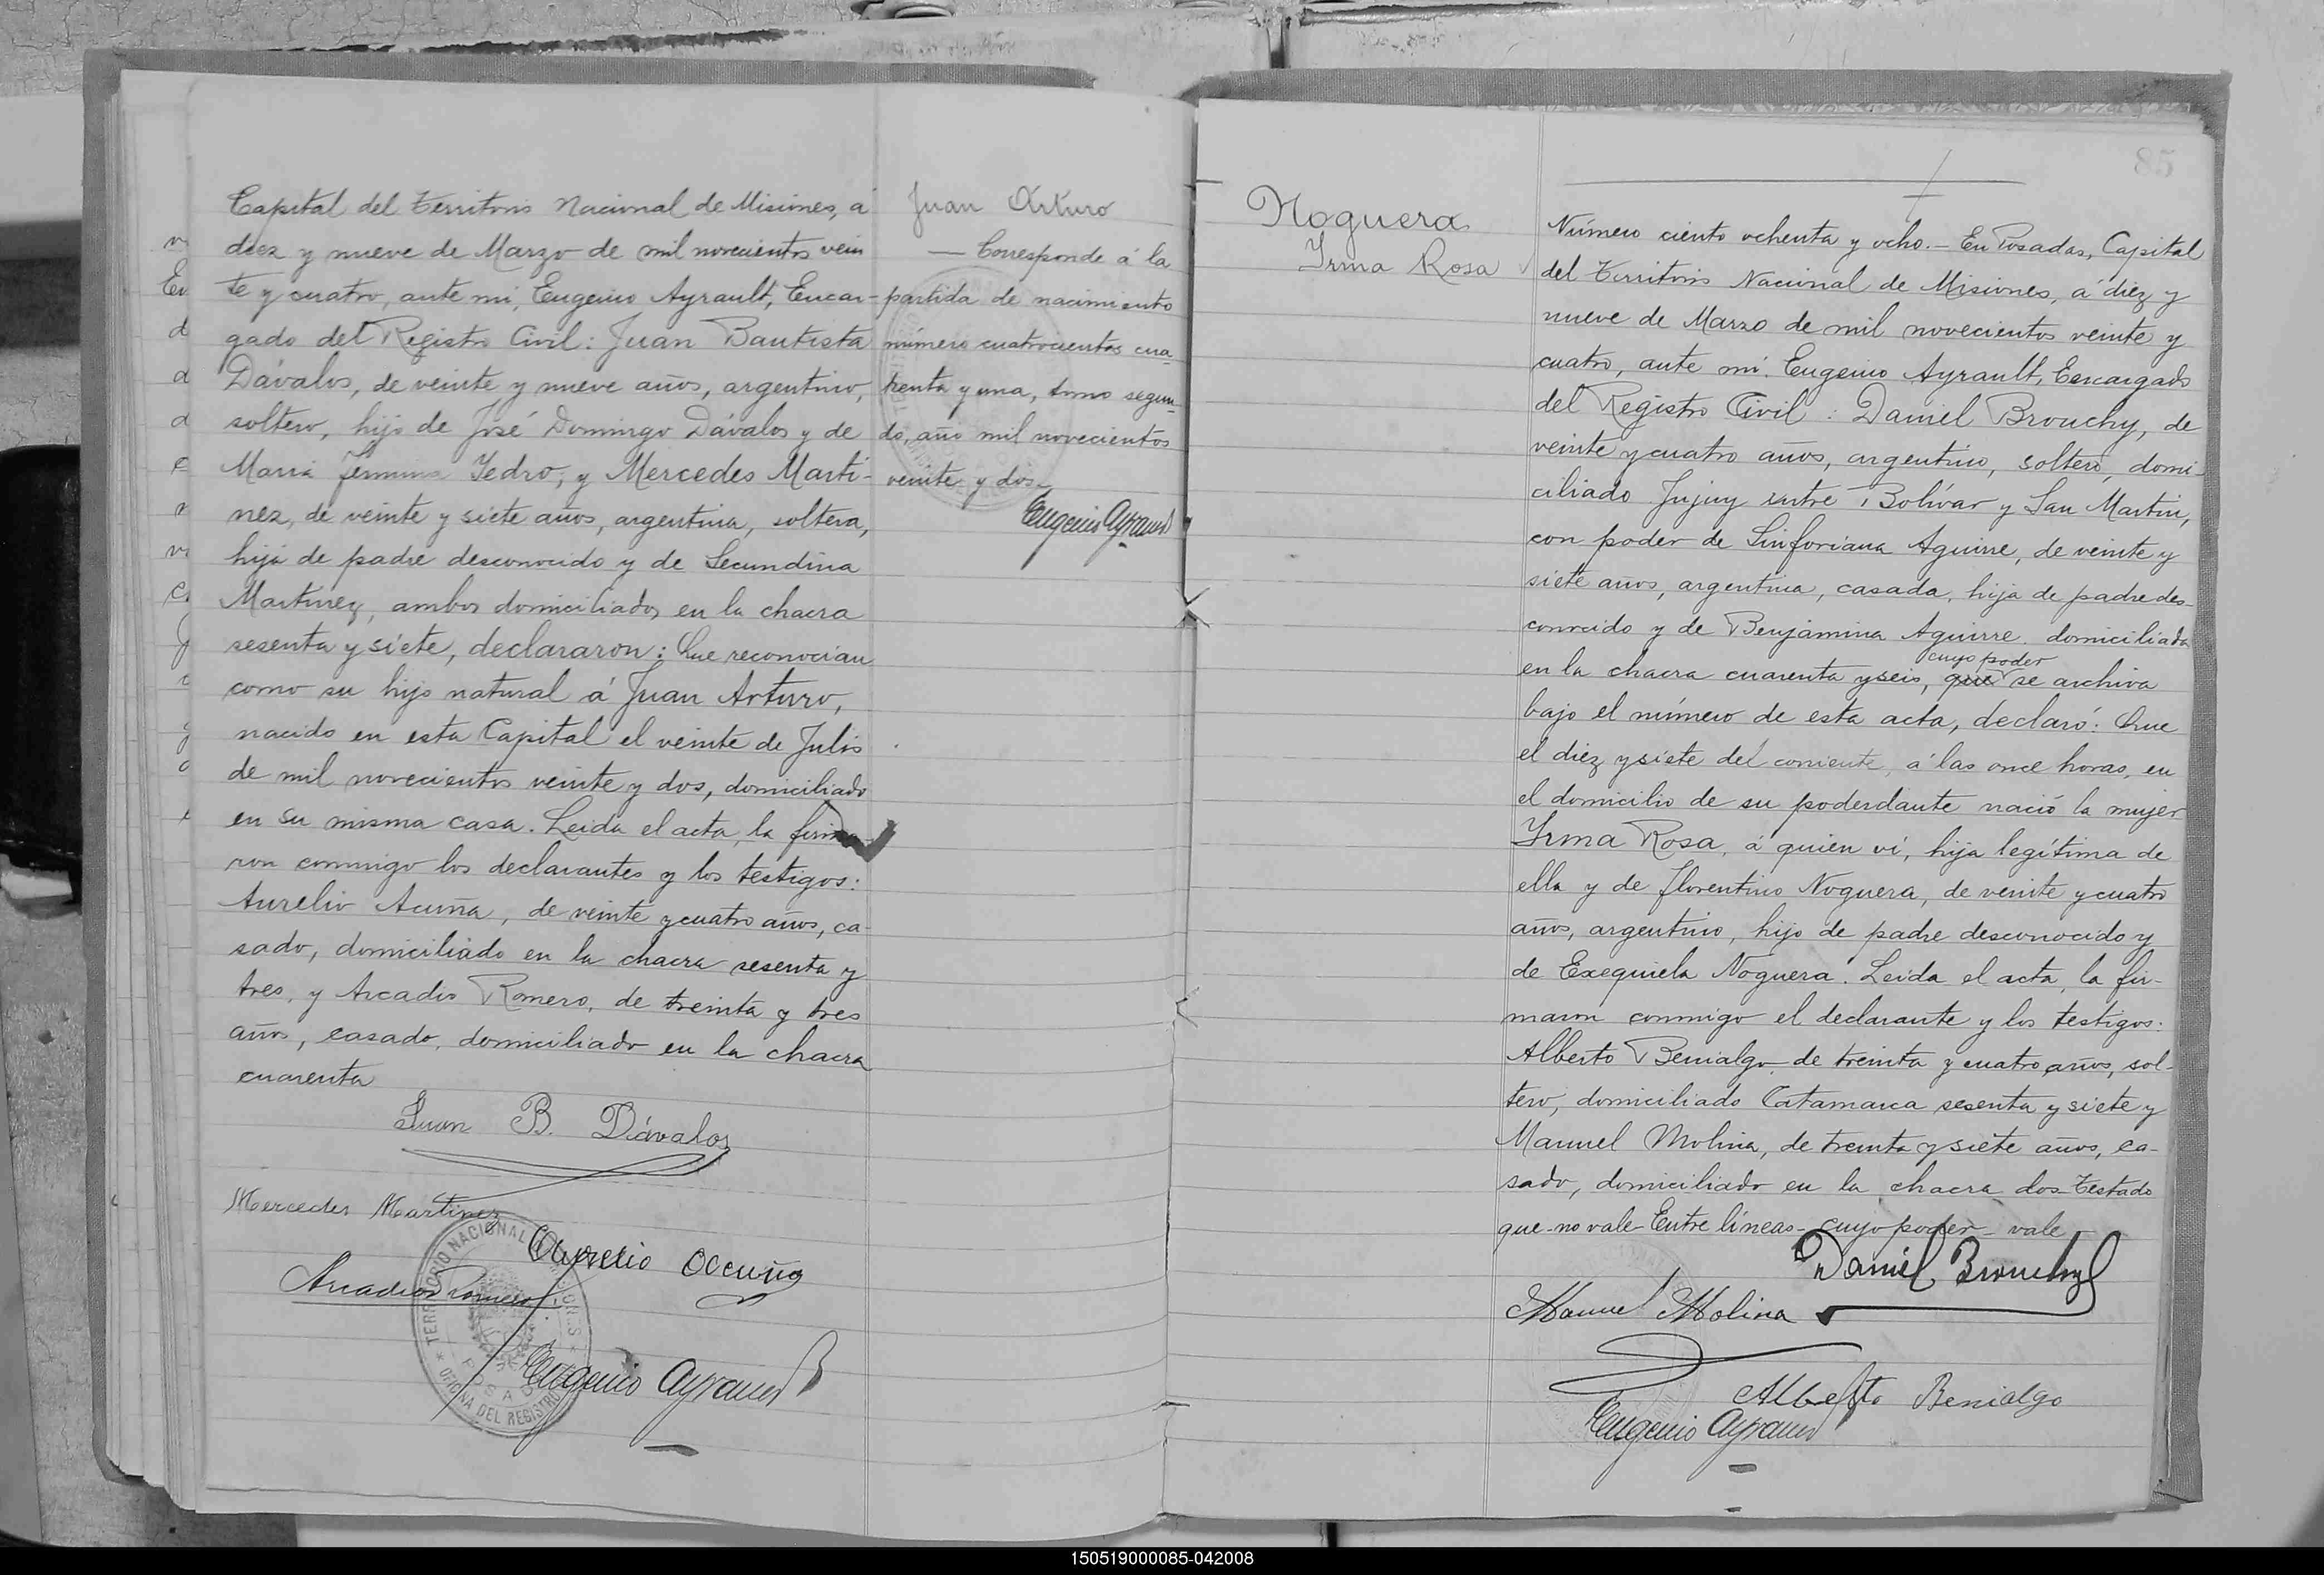 Capital del Territorio Nacional de Misiones, á
diez y nueve de Marzo de mil novecientos vein
te y cuatro, ante mi, Eugenio Ayrault, Encar-
gado del Registro Civil: Juan Bautista
Dávalos, de veinte y nueve años, argentino,
soltero, hijo de José Domingo Dávalos y de
Maria Fermina Yedro, y Mercedes Marti-
nez, de veinte y siete años, argentina, soltera,
hija de padre desconocido y de Secundina
Martinez, ambos domiciliados en la chacra
sesenta y siete, declararon: Que reconocian
como su hijo natural á Juan Arturo,
nacido en esta Capital el veinte de Julio
de mil novecientos veinte y dos, domiciliado
en su misma casa. Leida el acta, la firma
ron conmigo los declarantes y los testigos:
Aurelio Acuña, de veinte y cuatro años, ca-
sado, domiciliado en la chacra sesenta y
tres, y Arcadio Romero, de treinta y tres
años, casado, domiciliado en la chacra
cuarenta
Juan B. Dávalos
Mercedes Martinez
Aurelio Acuña
Arcadio Romero
TERRITORIO NACIONAL DE MISIONES
POSADAS
OFICINA DEL REGISTRO
Eugenio Ayrault
Juan Arturo
— Corresponde á la
partida de nacimiento
número cuatrocientos cua
renta y una, tomo segun
do, año mil novecientos
veinte y dos
Eugenio Ayrault
85
Noguera
Irma Rosa
Número ciento ochenta y ocho.- En Posadas, Capital
del Territorio Nacional de Misiones, á diez y
nueve de Marzo de mil novecientos veinte y
cuatro, ante mi. Eugenio Ayrault, Encargado
del Registro Civil: Daniel Brouchy, de
veinte y cuatro años, argentino, soltero, domi-
ciliado Jujuy entre Bolívar y San Martin,
con poder de Sinforiana Aguirre, de veinte y
siete años, argentina, casada, hija de padre des-
conocido y de Benjamina Aguirre, domiciliada
cuyo poder
en la chacra cuarenta y seis, que se archiva
bajo el número de esta acta, declaró: Que
el diez y siete del corriente, á las once horas, en
el domicilio de su poderdante nació la mujer
Irma Rosa, á quien ví, hija legítima de
ella y de Florentino Noguera, de veinte y cuatro
años, argentino, hijo de padre desconocido y
de Exequiela Noguera. Leida el acta, la fir-
maron conmigo el declarante y los testigos:
Alberto Benialgo, de treinta y cuatro años, sol-
tero, domiciliado Catamarca sesenta y siete y
Manuel Molina, de treinta y siete años, ca-
sado, domiciliado en la chacra dos-Testado
que-no vale-Entre líneas-cuyo poder-vale
Daniel Brouchy
Manuel Molina
Alberto Benialgo
Eugenio Ayrault
150519000085-042008